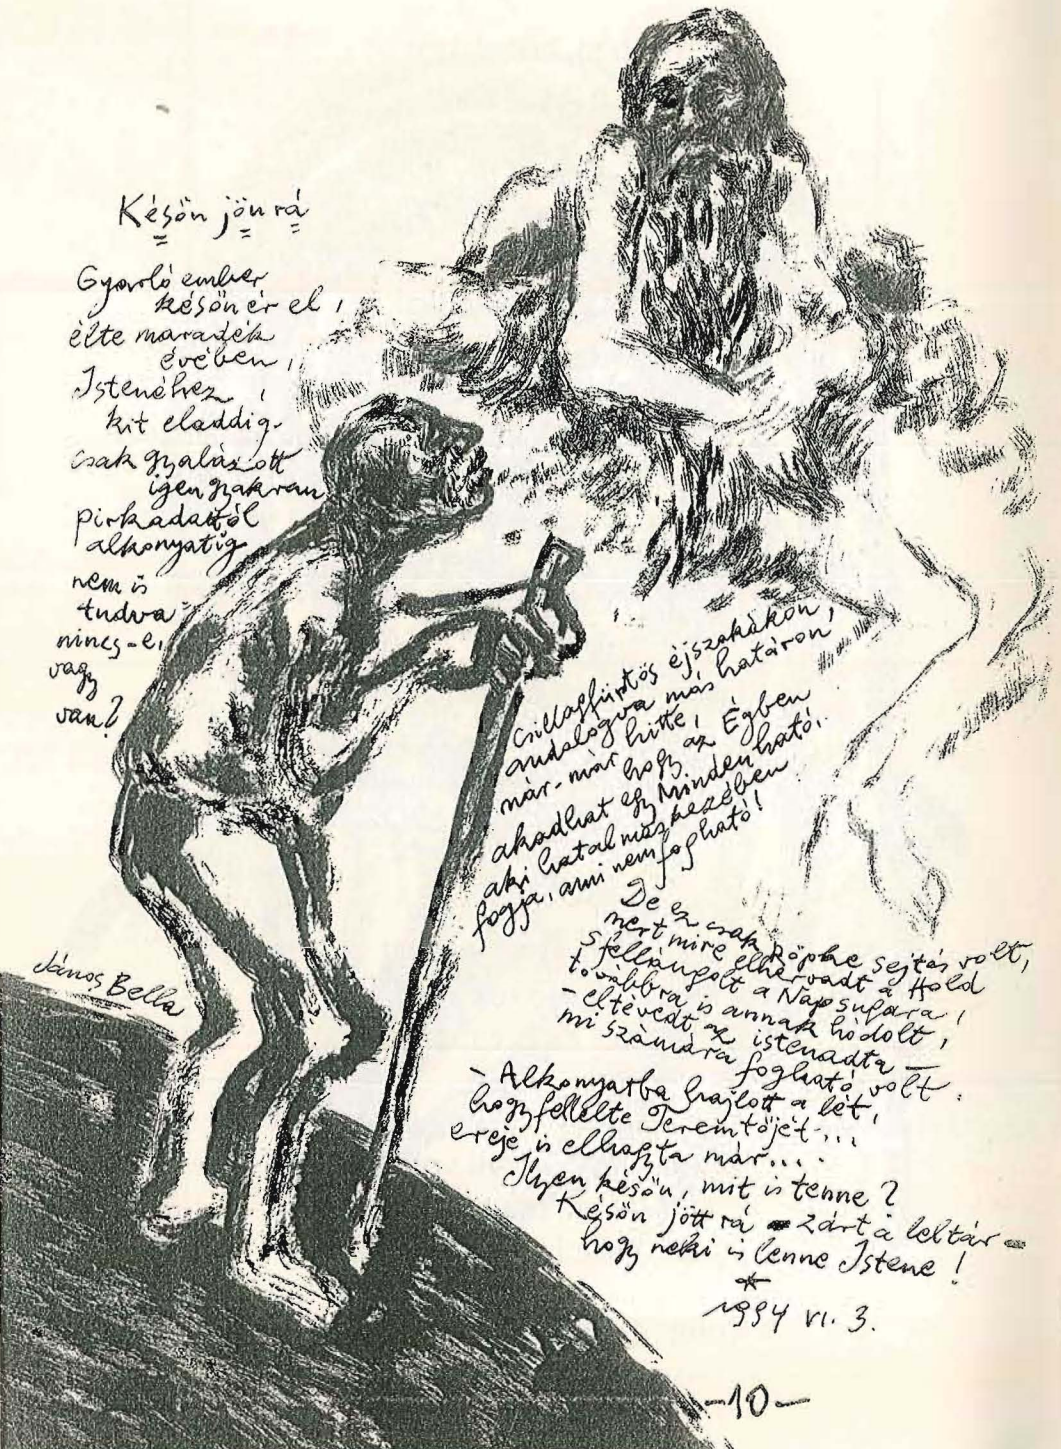 Későn jön rá
Gyarló ember
későn ér el,
élte maradék
évében,
Istenéhez,
kit eladdig
csak gyalázott
igen gyakran
pirkadattól
alkonyatig
nem is
tudva
nincs-e,
vagy
van?
Csillagfürtös éjszakákon,
andalogva más határon
már-már hitte,
hogy az Égben
akadhat egy Mindenható,
aki hatalmas kezében
fogja, ami nem fogható!
De ez csak röpke sejtés volt,
mert mire elhervadt a Hold
s fellángolt a Nap sugara,
továbbra is annak hódolt,
- eltévedt az istenadta -
mi számára fogható volt.
- Alkonyatba hajlott a lét,
hogy fellelte Teremtőjét...
ereje is elhagyta már....
Ilyen későn, mit is tenne?
Későn jött rá - zárt a leltár -
hogy neki is lenne Istene!
*
1994 VI. 3.
János Bella
-10-